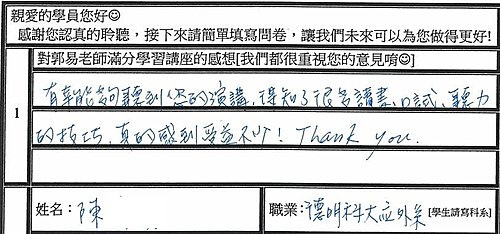 親愛的學員您好☺
感謝您認真的聆聽，接下來請簡單填寫問卷，讓我們未來可以為您做得更好!
對郭易老師滿分學習講座的感想[我們都很重視您的意見唷☺]
1
有幸能夠聽到您的演講，得知了很多讀書、口試、聽力
的技巧，真的感到受益不少！Thank you.
姓名：陳
職業：德明科大應外系 [學生請寫科系]